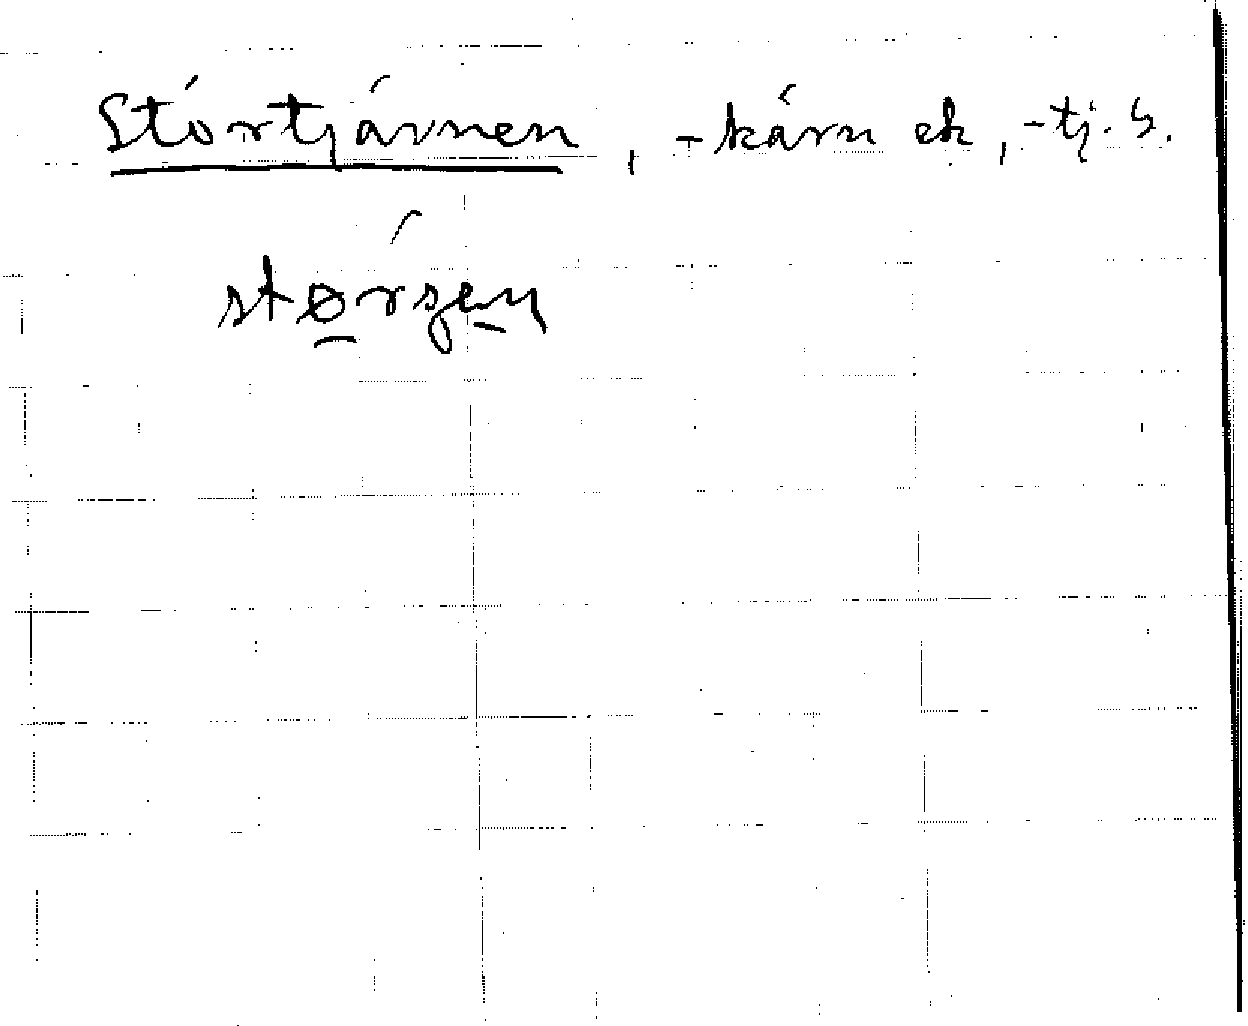 Stórtjárnen, -kärn ek, -tj. G.
størzen